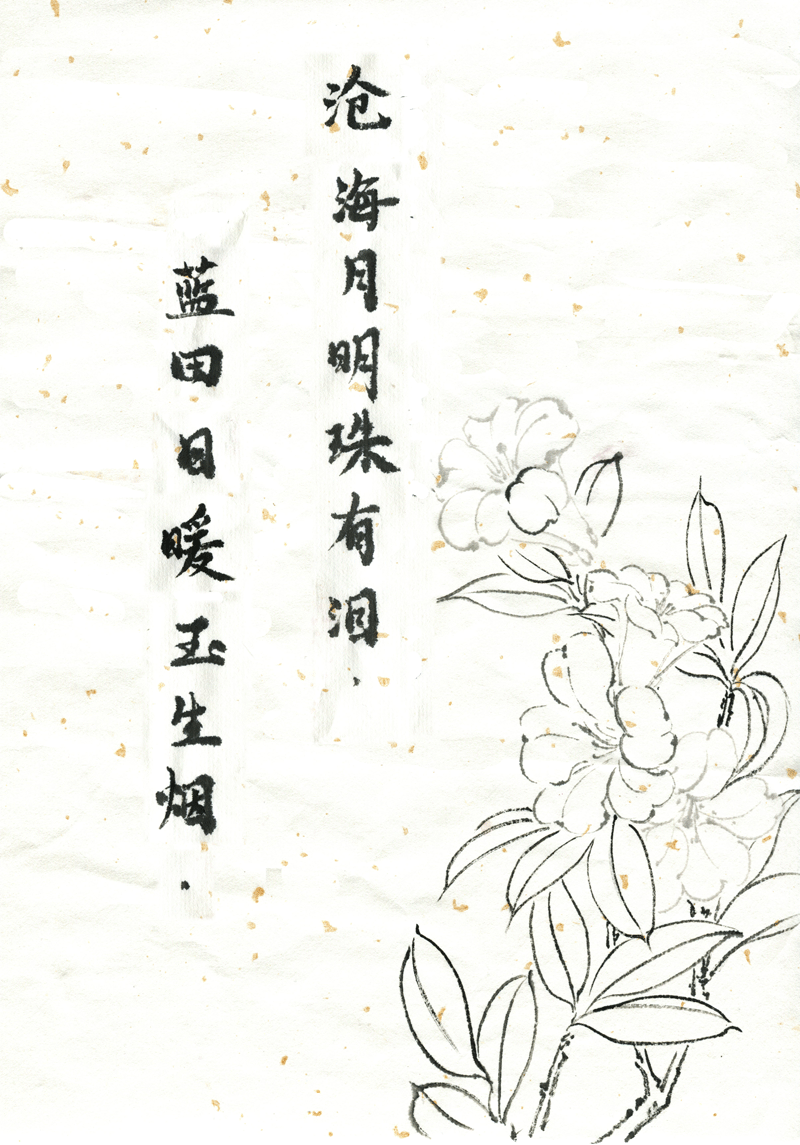 沧海月明珠有泪.
蓝田日暖玉生烟.